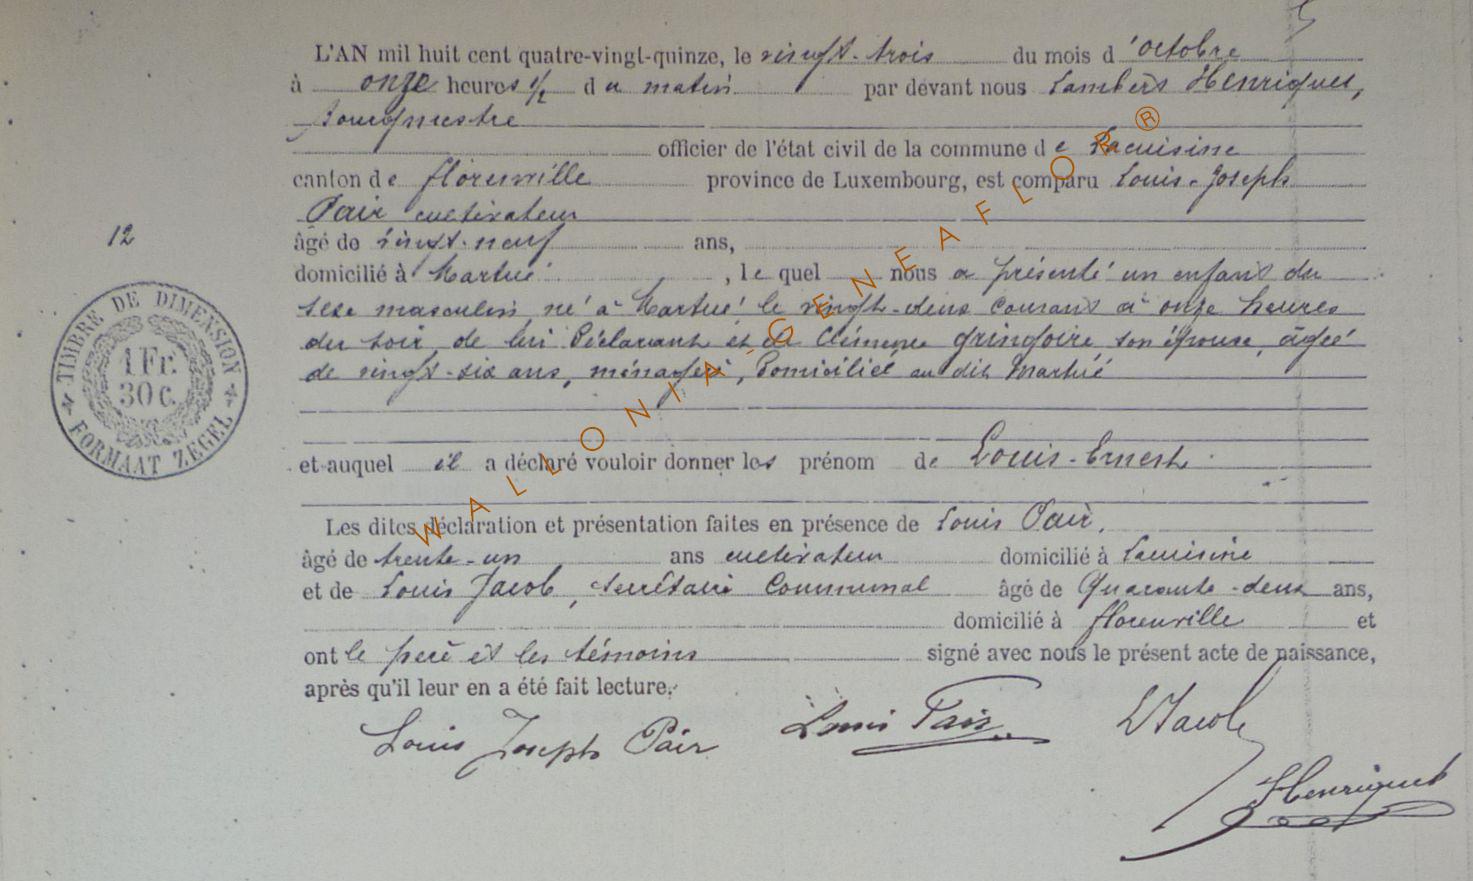 L'AN mil huit cent quatre-vingt-quinze, le vingt-trois du mois d'octobre
à onze heures 1/2 du matin par devant nous Lambert Henriquet,
bourgmestre
officier de l'état civil de la commune de Lacuisine
canton de florenville province de Luxembourg, est comparu Louis-Joseph
Pair cultivateur
12
âgé de vingt-neuf ans,
domicilié à Martué, le quel nous a présenté un enfant du
sexe masculin, né à Martué le vingt-deux courant à onze heures
du soir, de lui Déclarant et de Clémence gringoire son épouse, âgée
de vingt-six ans, ménagère, Domiciliée au dit Martué
et auquel il a déclaré vouloir donner les prénom de Louis-Ernest
Les dites déclaration et présentation faites en présence de Louis Pair,
âgé de trente-un ans cultivateur domicilié à Lacuisine
et de Louis Jacob, Secrétaire Communal âgé de Quarante-deux ans,
domicilié à florenville et
ont le père et les témoins signé avec nous le présent acte de naissance,
après qu'il leur en a été fait lecture.
Louis Joseph Pair Louis Pair LJacob
Henriquet
TIMBRE DE DIMENSION
1 Fr.
30 c.
FORMAAT ZEGEL
WALLONIA-GENEAFLOR®